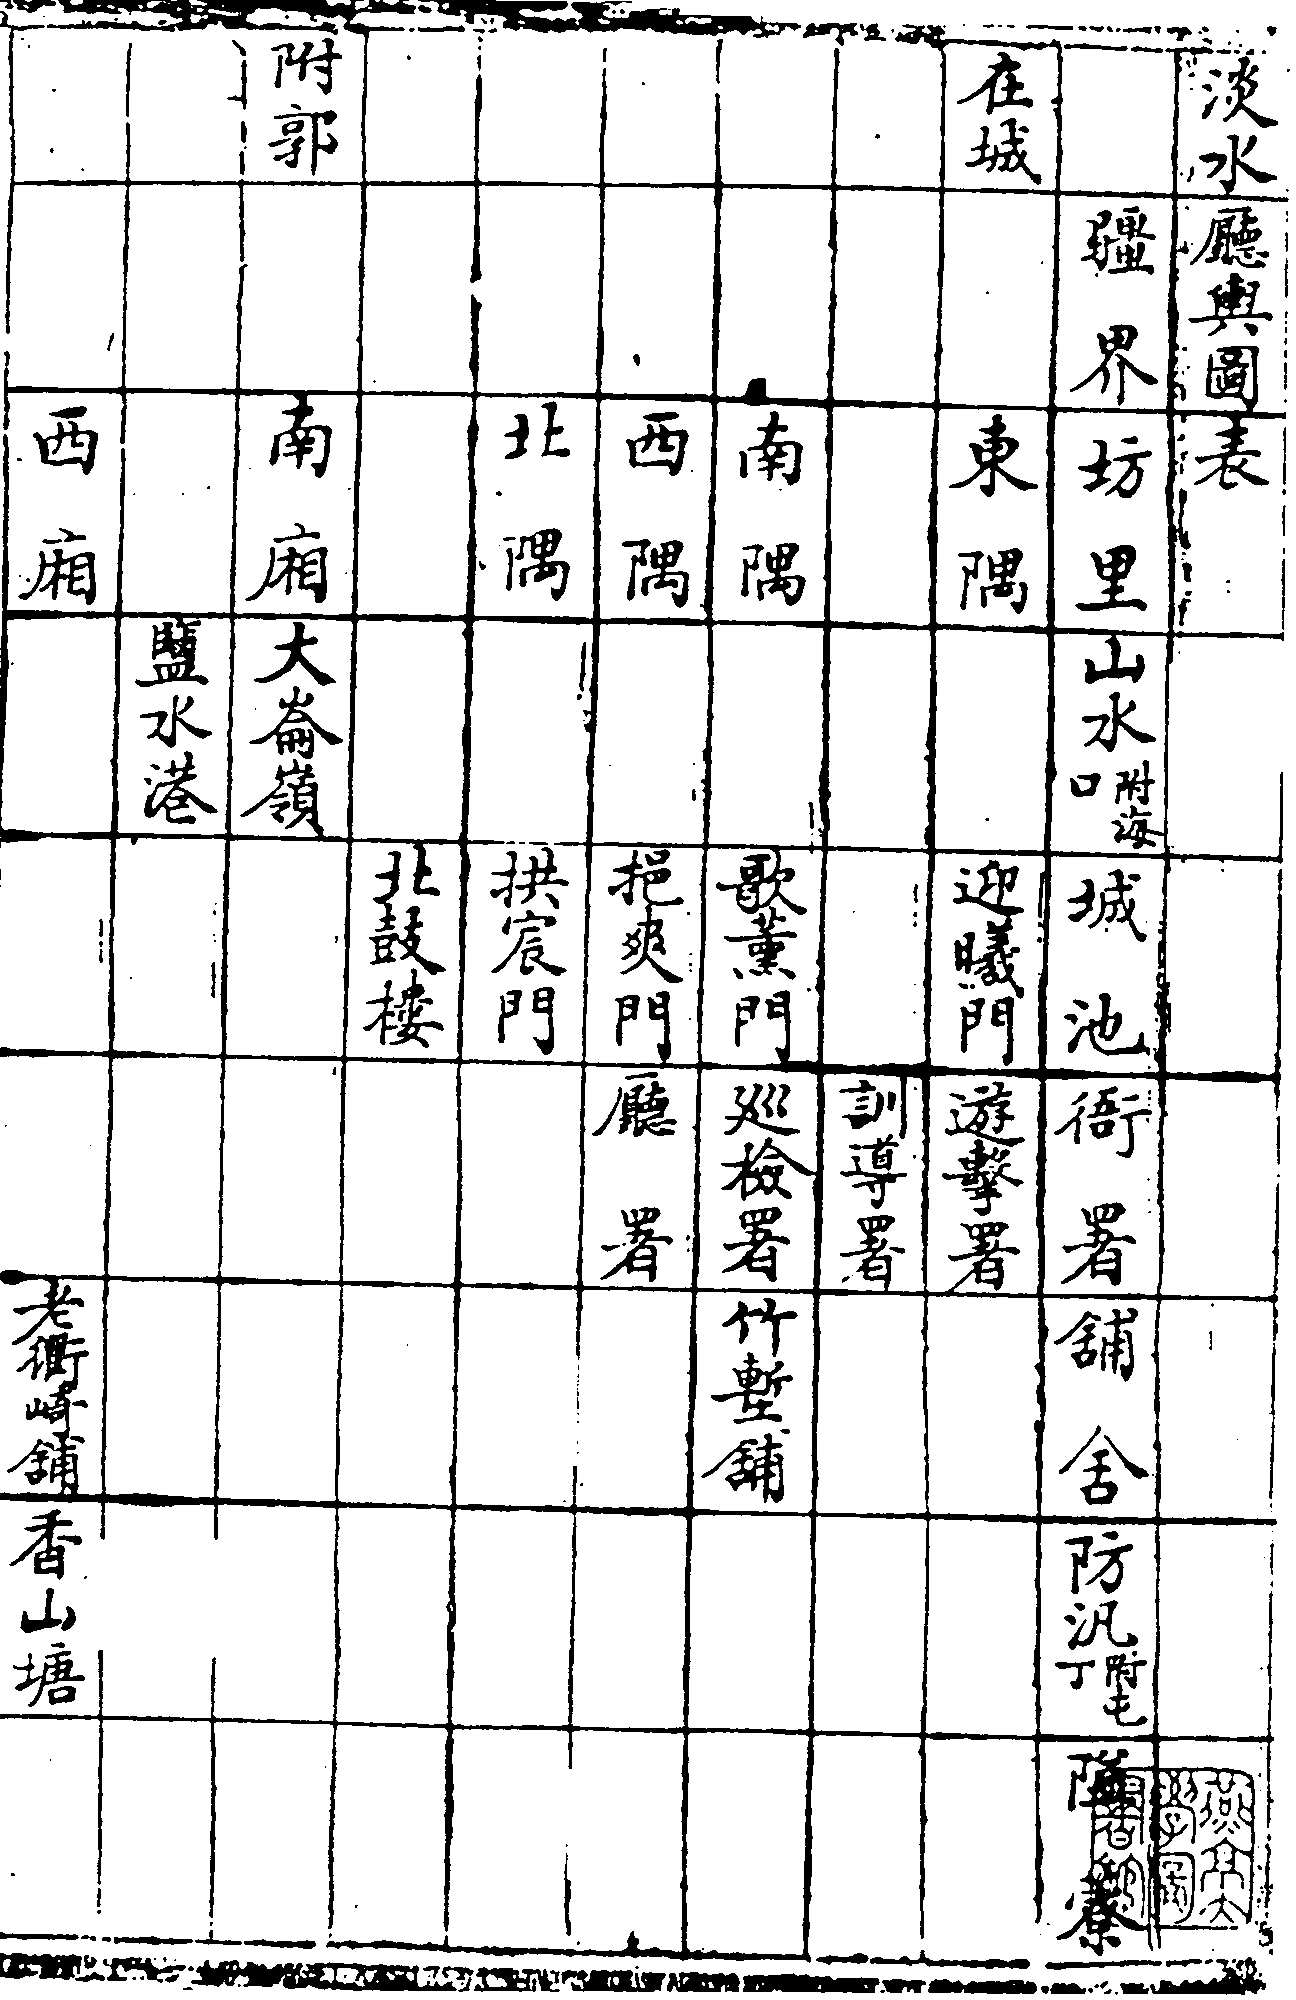 淡水廳輿圖表
疆界 坊里 山水附海口 城池 衙署 舖舍 防汛附屯丁 隘寮
在城 東隅 迎曦門 遊擊署
訓導署
南隅 歌薰門 巡檢署 竹塹舖
西隅 挹爽門 廳署
北隅 拱宸門
北鼓樓
附郭 南廂 大崙嶺
鹽水港
西廂 老衢崎舖 香山塘
燕京大學圖書館